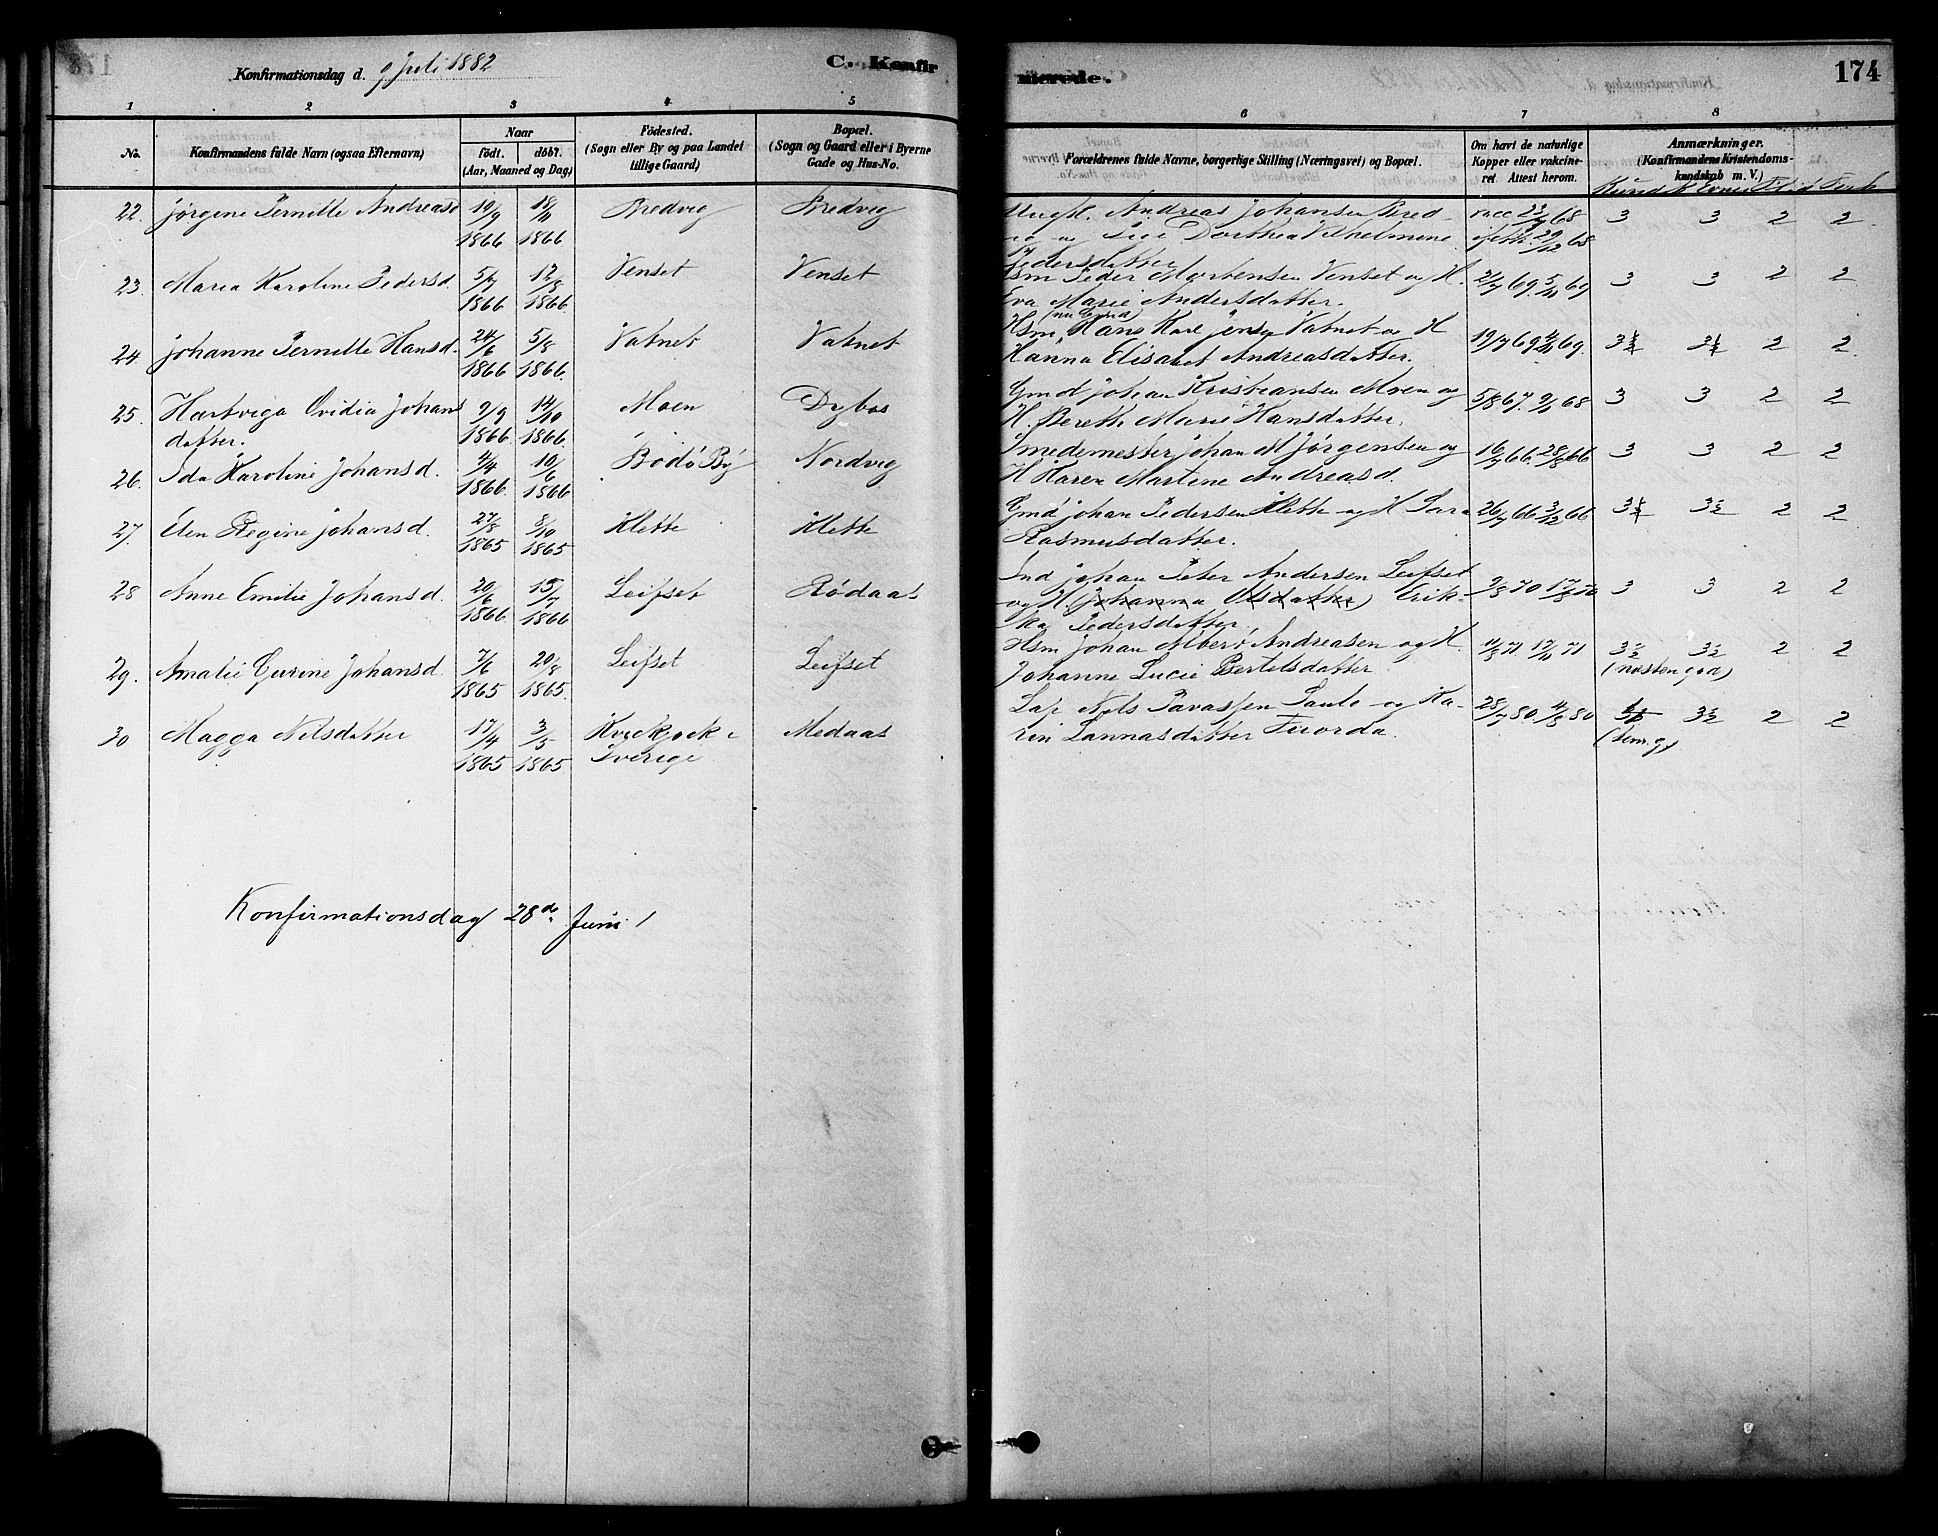 Konfirmationsdag d. 9 Juli 1882 C. Konfir
merede. 174
1 2 3 4 5 6 7 8
No. Konfirmandens fulde Navn (ogsaa Efternavn) Naar født. døbt. (Aar, Maaned og Dag) Fødested. (Sogn eller By og paa Landet tillige Gaard) Bopæl. (Sogn og Gaard eller i Byerne Gade og Hus-No. Forældrenes fulde Navne, borgerlige Stilling (Næringsvei) og Bopæl. Om havt de naturlige Kopper eller vakcineret. Attest herom. Anmærkninger. (Konfirmandens Kristendomskundskab m. V.)
22. Jørgine Pernille Andreasd 19/9 1866 18/11 1866 Bredvig Bredvig Andreas Johansen Bred- vacc 23/7 68 3 3 2 2
Dorthea Vilhelmine 29/12 68
Pedersdatter
23. Maria Karoline Pedersd. 5/7 1866 12/8 1866 Venset Venset Hsm Peder Mortensen Venset og H. 2/7 69 5/11 69 3 3 2 2
Eva Marie Andersdatter.
24. Johanne Pernille Hansd. 24/6 1866 5/8 1866. Vatnet Vatnet Hsm, Hans Karl Jensen Vatnet og H 19/7 69 4/11 69. 3½ 3½ 2 2
Hanna Elisabet Andreasdatter.
25. Hartviga Ovidia Johans 9/9 1866 14/10 1866. Moen Dybos Gmd Johan Kristiansen Moen og 5/8 67. 9/1 68 3 3 2 2
datter. H. Bereth Marie Hansdatter.
26. Ida Karoline Johansd. 4/4 1866 10/6 1866 Bodø By Nordvig Smedemester Johan M Jørgensen og 16/7 66. 28/8 66 3 3 2 2
H Karen Martine Andreasd.
27. Elen Regine Johansd. 27/8 1865 8/10 1865 Klette Klette Gmd Johan Pedersen Klette og H Sara 26/7 66 3/12 66 3½ 3½ 2 2
Rasmusdatter.
28 Anne Emilie Johansd. 20/6 1866 15/7 1866 Leifset Rødaas Ind Johan Peter Andersen Leifset 9/8 70 17/8 70 3 3 2 2
og H. (Johanna Olsdatter) Erik-
ka Pedersdatter.
29. Amalie Gurine Johansd. 7/6 1865 20/8 1865. Leifset Leifset Hsm Johan Albert Andreasen og H. 11/8 71 12/11 71 3½ 3½ 2 2
Johanne Lucie Bertelsdatter (næsten god)
30 Magga Nilsdatter 17/4 1865 3/5 1865 Kvickjock i Medaas Lap Nils Saulo og Ka- 28/7 80 4/8 80 3½ 2 2
Sverige rin Lannasdatter Fuorda. (tem. g)
Konfirmationsdag 28de Juni